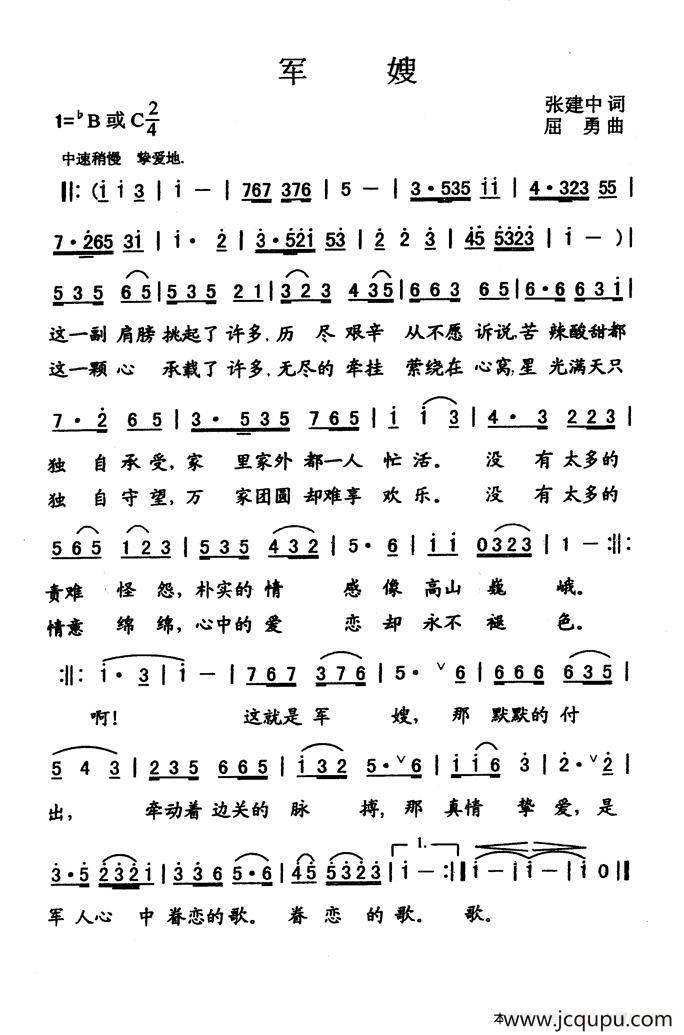 军 嫂
1=♭B 或 C 2/4
张建中 词
屈 勇 曲
中速稍慢 挚爱地.
‖: ( i i 3 | i — | 767 376 | 5 — | 3·535 i i | 4·323 55 |
7·265 3i | i· 2 | 3·52i 53 | 2 2 3 | 45 5323 | i — ) |
535 65 | 535 21 | 323 435 | 663 65 | 6·663i |
这一副 肩膀 挑起了 许多, 历 尽 艰辛 从不愿 诉说, 苦 辣酸甜都
这一颗 心 承载了 许多, 无尽的 牵挂 萦绕在 心窝, 星 光满天只
7·2 65 | 3· 535 765 | i i i 3 | 4· 3 223 |
独 自 承 受, 家 里家外 都一人 忙 活。 没 有 太多的
独 自 守 望, 万 家团圆 却难享 欢 乐。 没 有 太多的
565 123 | 535 432 | 5· 6 | i i 0323 | 1 — :‖:
责难 怪 怨, 朴实的 情 感 像 高山 巍 峨。
情意 绵 绵, 心中的 爱 恋 却 永不 褪 色。
:‖: i· 3 | i — | 767 376 | 5· ∨ 6 | 666 635 |
啊! 这就是 军 嫂, 那 默默的 付
5 4 3 | 235 665 | i32 5·∨6 | i i 6 3 | 2·∨2 |
出, 牵动着 边关的 脉 搏, 那 真情 挚 爱, 是
3·5 232i | 335 5·6 | 45 5323 | 1. i — :‖ i — | i — | i 0 ‖
军 人心 中 眷恋的 歌。 眷 恋 的 歌。 歌。
本
www.jcqupu.com